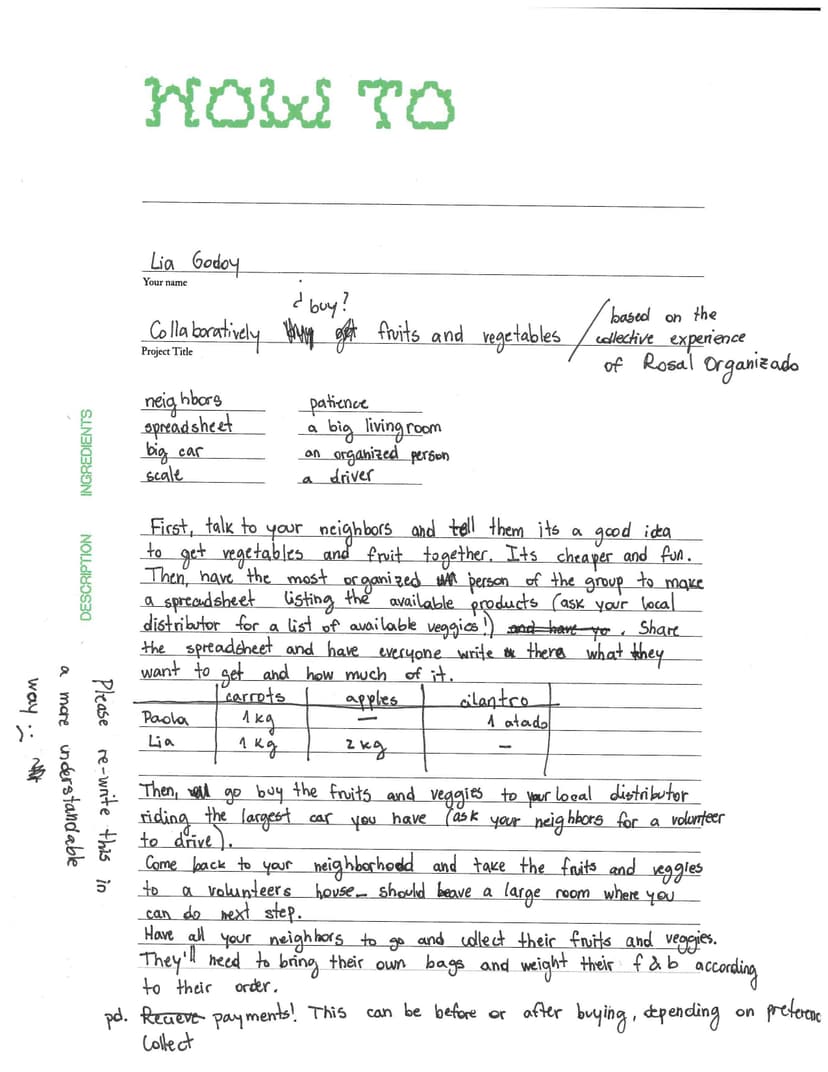 HOW TO
Lia Godoy
Your name
¿ buy?
Collaboratively fruits and vegetables / based on the
collective experience
of Rosal Organizado
Project Title
neighbors patience
spreadsheet a big livingroom
big car an organized person
scale a driver
INGREDIENTS
DESCRIPTION
First, talk to your neighbors and tell them its a good idea
to get vegetables and fruit together. Its cheaper and fun.
Then, have the most organized person of the group to make
a spreadsheet listing the available products (ask your local
distributor for a list of available veggies!) and have yo. Share
the spreadsheet and have everyone write there what they
want to get and how much of it.
carrots apples cilantro
Paola 1 kg — 1 atado
Lia 1 kg 2 kg —
Then, go buy the fruits and veggies to your local distributor
riding the largest car you have (ask your neighbors for a volunteer
to drive).
Come back to your neighborhood and take the fruits and veggies
to a volunteers house_ should have a large room where you
can do next step.
Have all your neighbors to go and collect their fruits and veggies.
They'll need to bring their own bags and weight their f & b according
to their order.
pd. Recieve payments! This can be before or after buying, depending on preferenc
Collect
Please re-write this in
a more understandable
way :)